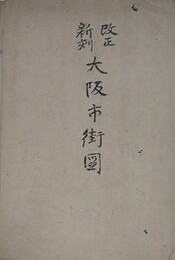 改正
新刻
大阪市街図